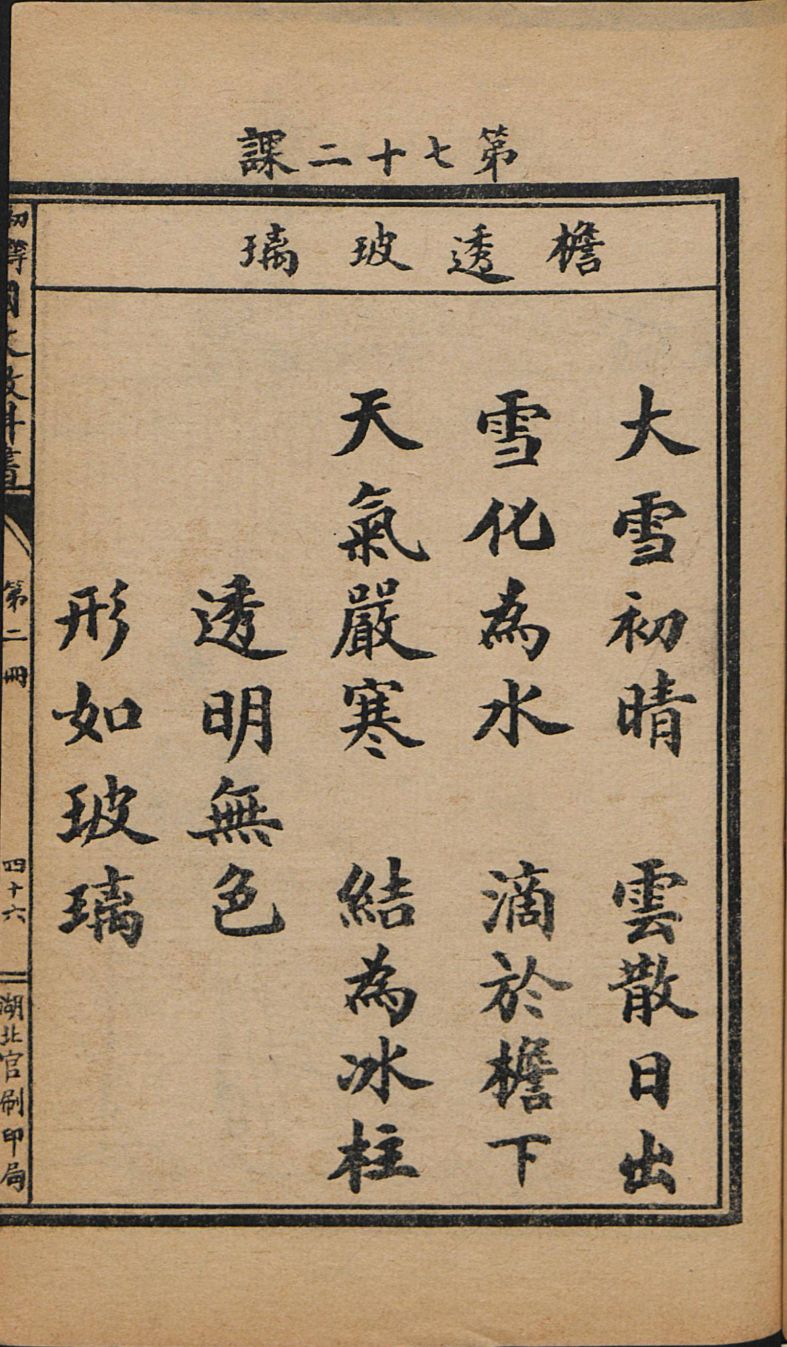 第七十二課
檐透玻璃
大雪初晴　雲散日出
雪化為水　滴於檐下
天氣嚴寒　結為冰柱
透明無色
形如玻璃
初等國文教科書
第二冊
四十六
湖北官刷印局